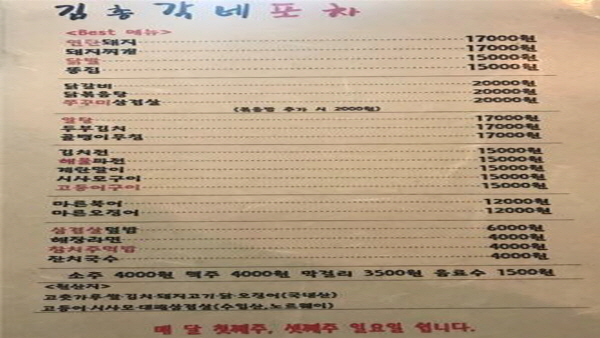 김총각네포차
<Best 메뉴>
연탄돼지 17000원
돼지찌개 17000원
닭발 15000원
똥집 15000원
닭갈비 20000원
닭볶음탕 20000원
쭈꾸미삼겹살 20000원
(볶음밥 추가 시 2000원)
알탕 17000원
두부김치 17000원
골뱅이무침 17000원
김치전 15000원
해물파전 15000원
계란말이 15000원
시사모구이 15000원
고등어구이 15000원
마른북어 12000원
마른오징어 12000원
삼겹살덮밥 6000원
해장라면 4000원
참치주먹밥 4000원
잔치국수 4000원
소주 4000원 맥주 4000원 막걸리 3500원 음료수 1500원
<원산지>
고춧가루·쌀·김치·돼지고기·닭·오징어(국내산)
고등어·시사모·대패삼겹살(수입산,노르웨이)
매 달 첫째주, 셋째주 일요일 쉽니다.